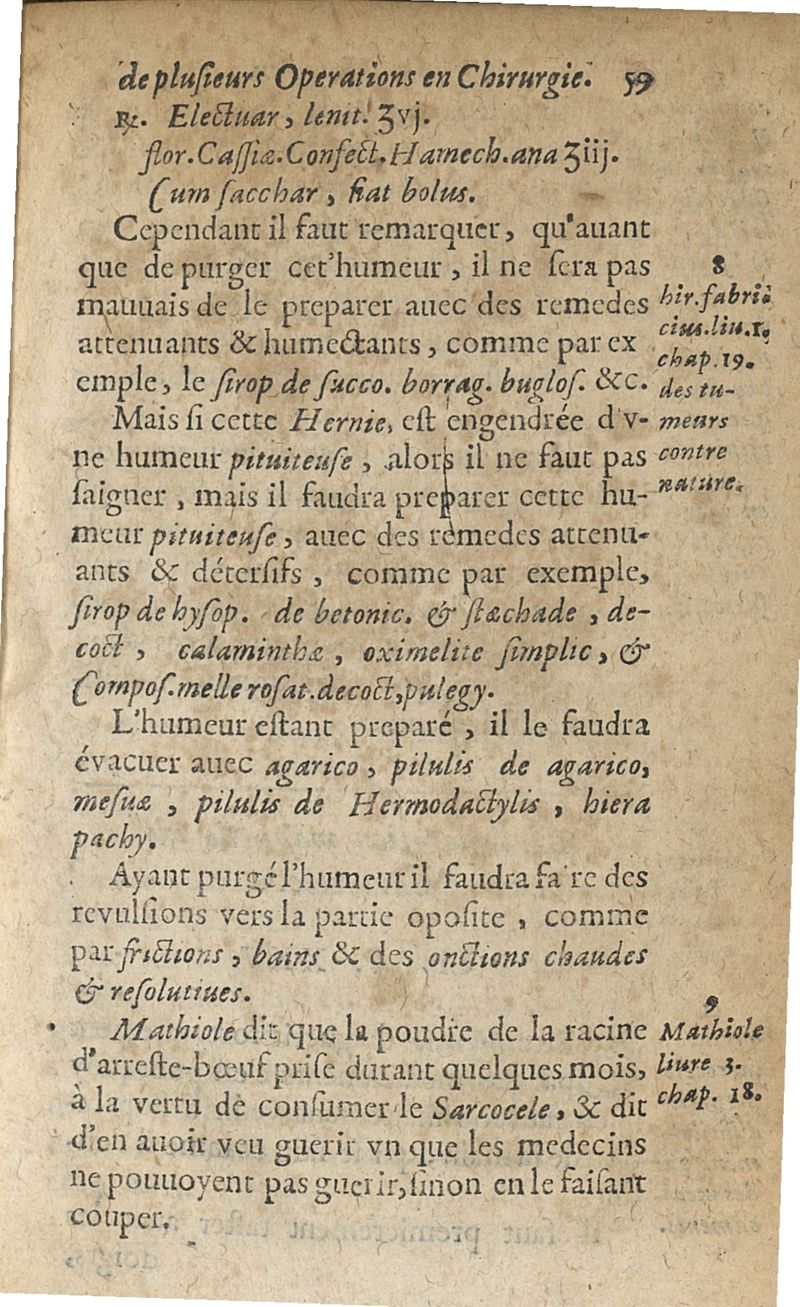 de plusieurs Operations en Chirurgie. 59
℞. Electuar, lenit. ʒvj.
flor. Cassiæ. Confect. Hamech. ana ʒiij.
Cum sacchar, fiat bolus.
Cependant il faut remarquer, qu'auant
que de purger cet'humeur, il ne sera pas
mauuais de le preparer auec des remedes
attenuants & humectants, comme par ex
emple, le sirop de succo. borrag. buglos. &c.
8
hir. fabri
cius. liu. 1.
chap. 19.
des tu-
meurs
contre
nature.
Mais si cette Hernie, est engendrée d'v-
ne humeur pituiteuse, alors il ne faut pas
saigner, mais il faudra preparer cette hu-
meur pituiteuse, auec des remedes attenu-
ants & détersifs, comme par exemple,
sirop de hysop. de betonic. & stæchade, de-
coct, calaminthæ, oximelite simplic, &
Compos. melle rosat. decoct, pulegy.
L'humeur estant preparé, il le faudra
évacuer auec agarico, pilulis de agarico,
mesuæ, pilulis de Hermodactylis, hiera
pachy.
Ayant purgé l'humeur il faudra fa re des
revulsions vers la partie oposite, comme
par frictions, bains & des onctions chaudes
& resolutiues.
Mathiole dit que la poudre de la racine
d'arreste-bœuf prise durant quelques mois,
à la vertu de consumer le Sarcocele, & dit
d'en auoir veu guerir vn que les medecins
ne pouuoyent pas guerir, sinon en le faisant
couper.
9
Mathiole
liure 3.
chap. 18.